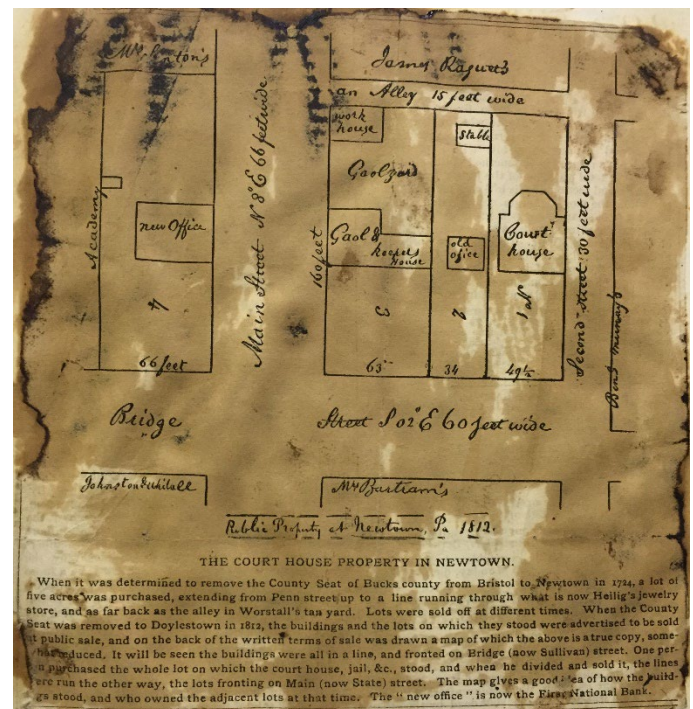 James Raguet's
an Alley 15 feet wide
work
house
Stable
Gaolyard
Academy
new Office
Main Street N 8° E 66 feet wide
160 feet
Gaol &
keepers
House
old
office
Court
house
Second street 30 feet wide
4
3
2
No 1
66 feet
63
34
49½
Bridge
Street S 82° E 60 feet wide
Johnston & Whitall
Mr Bartram's
Public Property at Newtown, Pa 1812.
THE COURT HOUSE PROPERTY IN NEWTOWN.
When it was determined to remove the County Seat of Bucks county from Bristol to Newtown in 1724, a lot of
five acres was purchased, extending from Penn street up to a line running through what is now Heilig's jewelry
store, and as far back as the alley in Worstall's tan yard. Lots were sold off at different times. When the County
Seat was removed to Doylestown in 1812, the buildings and the lots on which they stood were advertised to be sold
at public sale, and on the back of the written terms of sale was drawn a map of which the above is a true copy, some-
what reduced. It will be seen the buildings were all in a line, and fronted on Bridge (now Sullivan) street. One per-
son purchased the whole lot on which the court house, jail, &c., stood, and when he divided and sold it, the lines
were run the other way, the lots fronting on Main (now State) street. The map gives a good idea of how the build-
gs stood, and who owned the adjacent lots at that time. The "new office" is now the First National Bank.